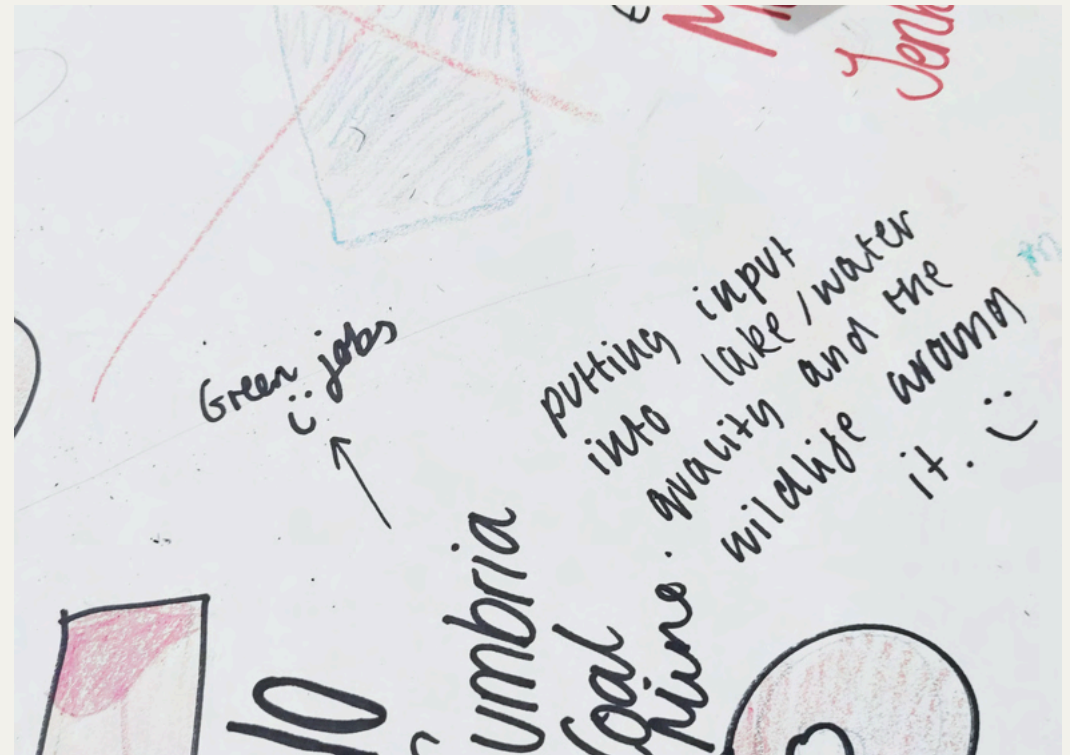 Jenk
Green jobs
putting input
into lake/water
quality and the
wildlife around
it.
umbria
Coal
Mine.